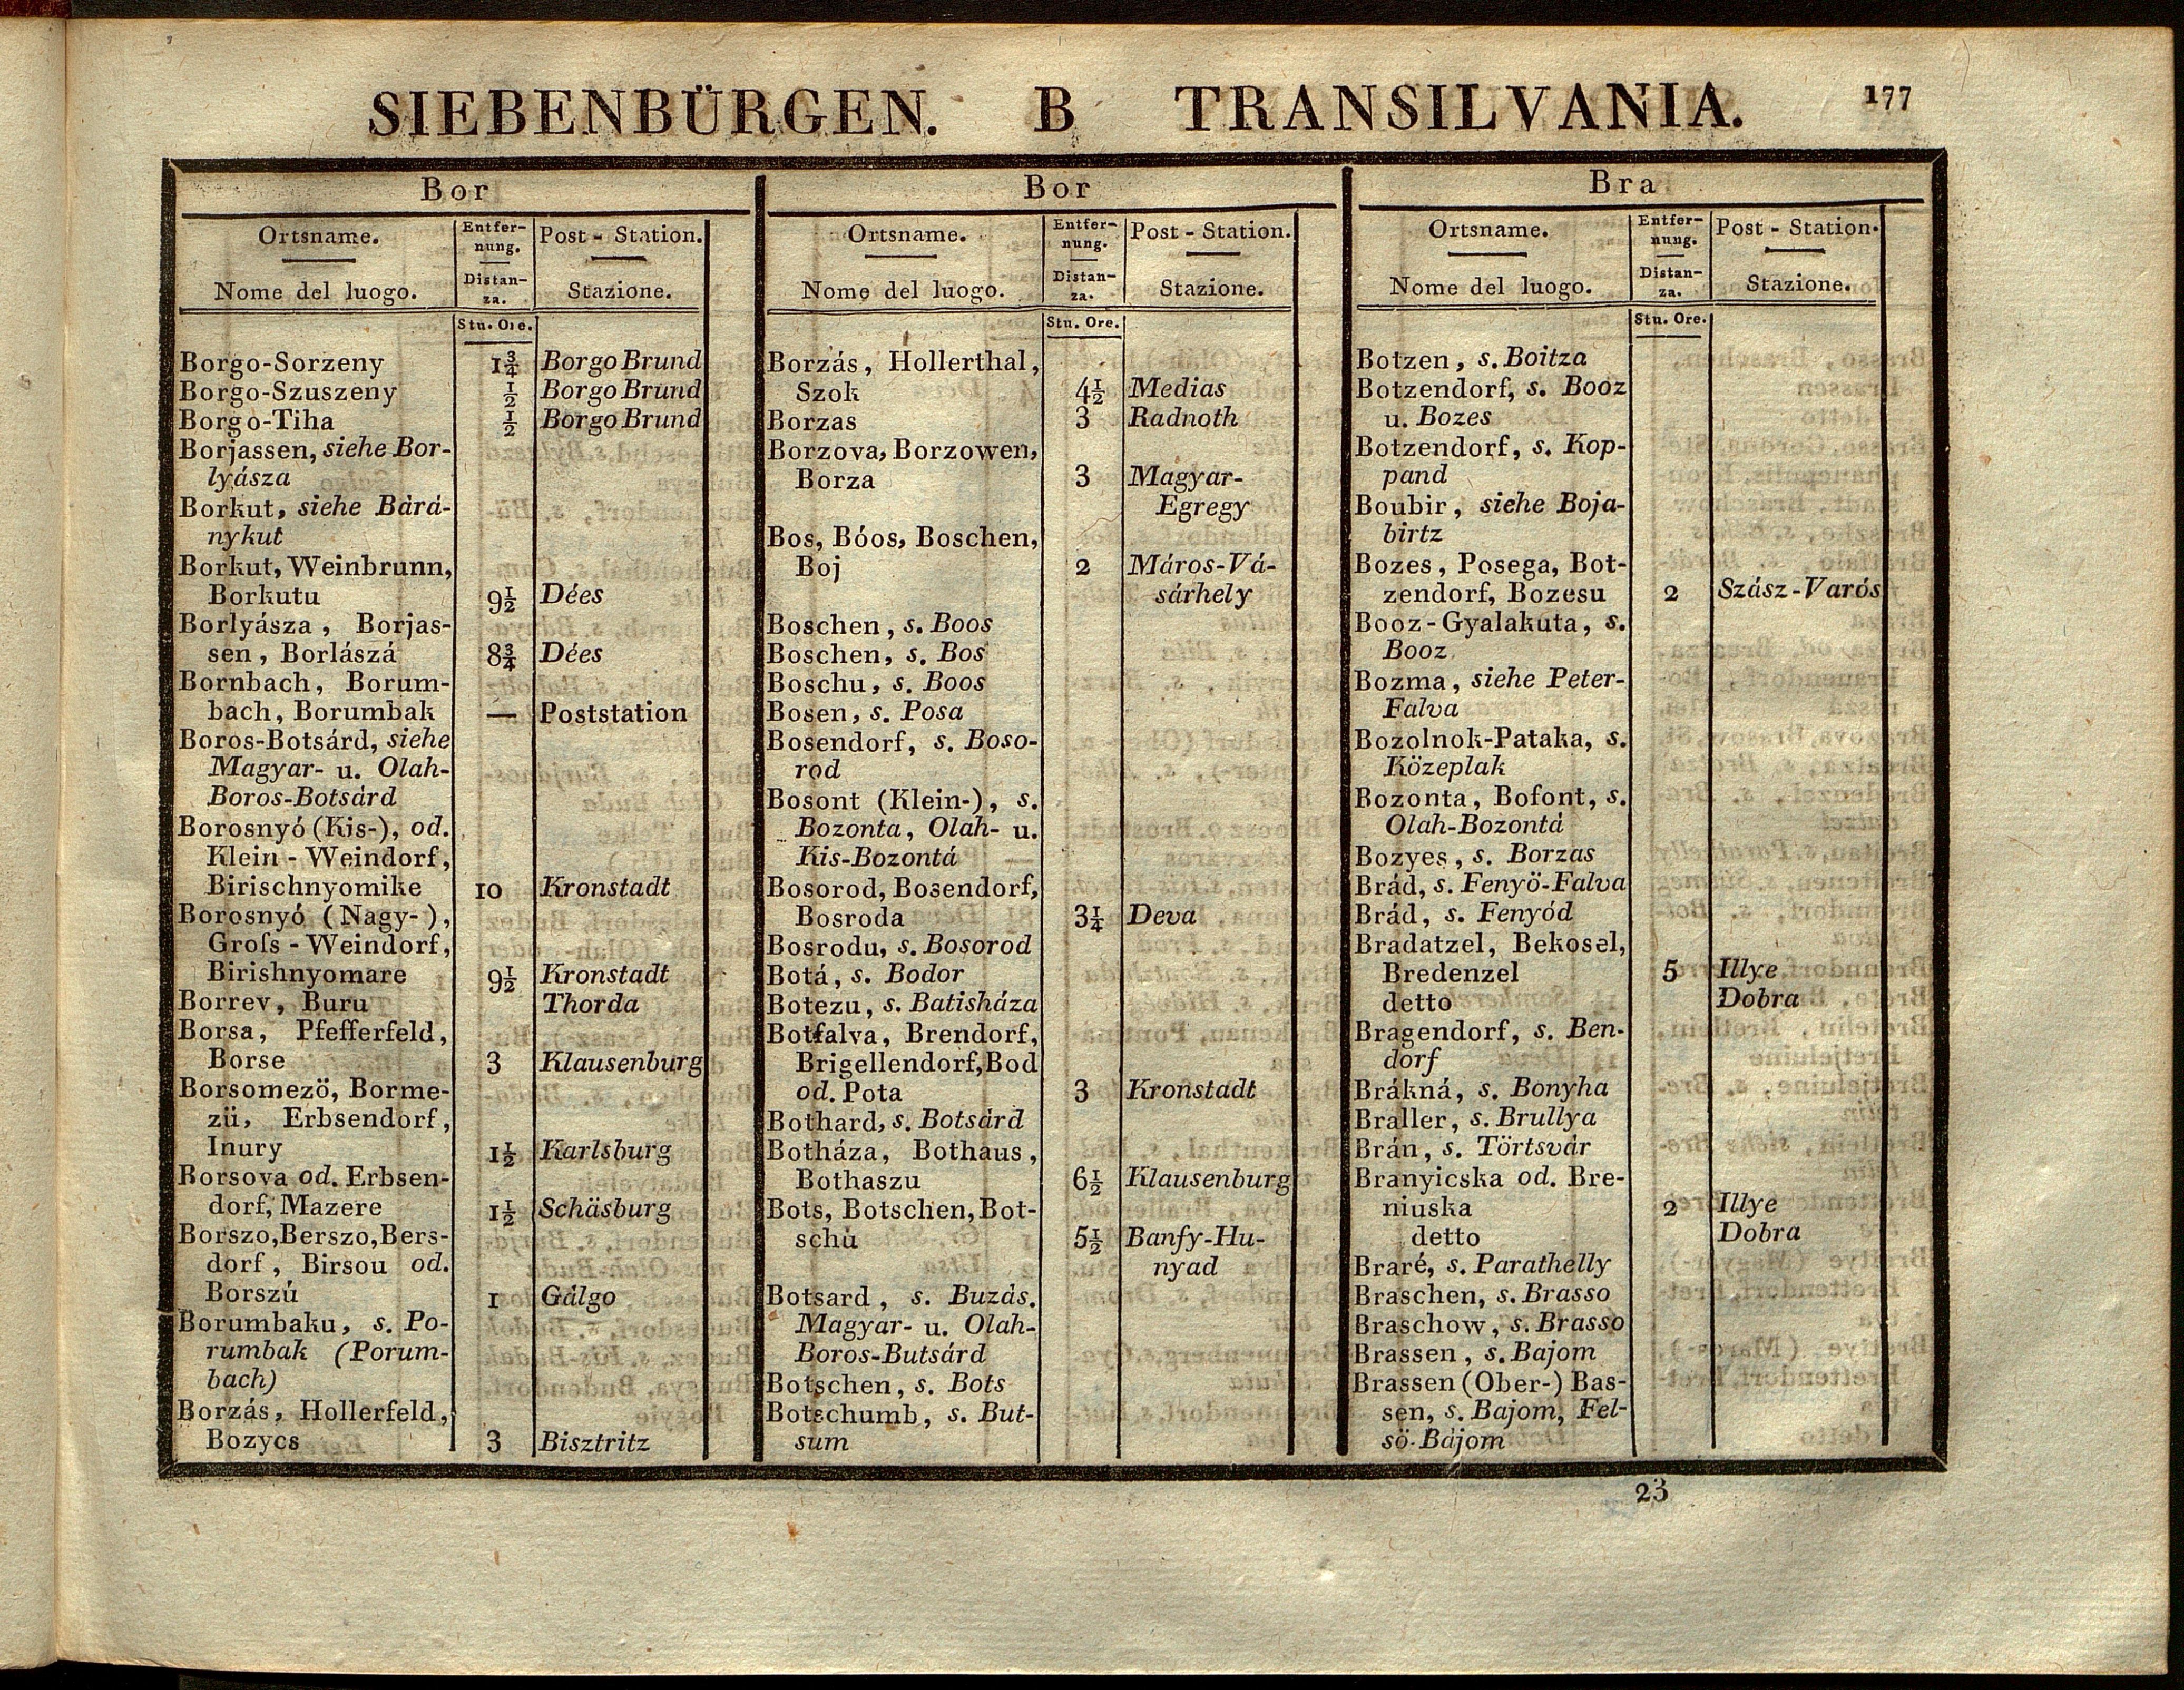 SIEBENBÜRGEN. B TRANSILVANIA. 177
Bor
Ortsname.
Nome del luogo.
Entfer-
nung.
Distan-
za.
Post - Station.
Stazione.
Stu. Ore.
Borgo-Sorzeny 1¾ Borgo Brund
Borgo-Szuszeny ½ Borgo Brund
Borgo-Tiha ½ Borgo Brund
Borjassen, siehe Bor-
lyásza
Borkut, siehe Bárá-
nykut
Borkut, Weinbrunn,
Borkutu 9½ Dées
Borlyásza, Borjas-
sen, Borlászá 8¾ Dées
Bornbach, Borum-
bach, Borumbak — Poststation
Boros-Botsárd, siehe
Magyar- u. Olah-
Boros-Botsárd
Borosnyó (Kis-), od.
Klein - Weindorf,
Birischnyomike 10 Kronstadt
Borosnyó (Nagy-),
Groſs - Weindorf,
Birishnyomare 9½ Kronstadt
Borrev, Buru Thorda
Borsa, Pfefferfeld,
Borse 3 Klausenburg
Borsomezö, Borme-
zü, Erbsendorf,
Inury 1½ Karlsburg
Borsova od. Erbsen-
dorf, Mazere 1½ Schäsburg
Borszo, Berszo, Bers-
dorf, Birsou od.
Borszú 1 Gálgo
Borumbaku, s. Po-
rumbak (Porum-
bach)
Borzás, Hollerfeld,
Bozycs 3 Bisztritz
Bor
Ortsname.
Nome del luogo.
Entfer-
nung.
Distan-
za.
Post - Station.
Stazione.
Stu. Ore.
Borzás, Hollerthal,
Szok 4½ Medias
Borzas 3 Radnoth
Borzova, Borzowen,
Borza 3 Magyar-
Egregy
Bos, Bóos, Boschen,
Boj 2 Máros-Vá-
sárhely
Boschen, s. Boos
Boschen, s. Bos
Boschu, s. Boos
Bosen, s. Posa
Bosendorf, s. Boso-
rod
Bosont (Klein-), s.
Bozonta, Olah- u.
Kis-Bozontá
Bosorod, Bosendorf,
Bosroda 3¼ Deva
Bosrodu, s. Bosorod
Botá, s. Bodor
Botezu, s. Batisháza
Botfalva, Brendorf,
Brigellendorf, Bod
od. Pota 3 Kronstadt
Bothard, s. Botsárd
Botháza, Bothaus,
Bothaszu 6½ Klausenburg
Bots, Botschen, Bot-
schù 5½ Banfy-Hu-
nyad
Botsard, s. Buzás.
Magyar- u. Olah-
Boros-Butsárd
Botschen, s. Bots
Botschumb, s. But-
sum
Bra
Ortsname.
Nome del luogo.
Entfer-
nung.
Distan-
za.
Post - Station.
Stazione.
Stu. Ore.
Botzen, s. Boitza
Botzendorf, s. Booz
u. Bozes
Botzendorf, s. Kop-
pand
Boubir, siehe Boja-
birtz
Bozes, Posega, Bot-
zendorf, Bozesu 2 Szász-Varós
Booz-Gyalakuta, s.
Booz
Bozma, siehe Peter-
Falva
Bozolnok-Pataka, s.
Közeplak
Bozonta, Bofont, s.
Olah-Bozontá
Bozyes, s. Borzas
Brád, s. Fenyö-Falva
Brád, s. Fenyód
Bradatzel, Bekosel,
Bredenzel 5 Illye
detto Dobra
Bragendorf, s. Ben-
dorf
Brákná, s. Bonyha
Braller, s. Brullya
Brán, s. Törtsvár
Branyicska od. Bre-
niuska 2 Illye
detto Dobra
Braré, s. Parathelly
Braschen, s. Brasso
Braschow, s. Brasso
Brassen, s. Bajom
Brassen (Ober-) Bas-
sen, s. Bajom, Fel-
sö-Bájom
23